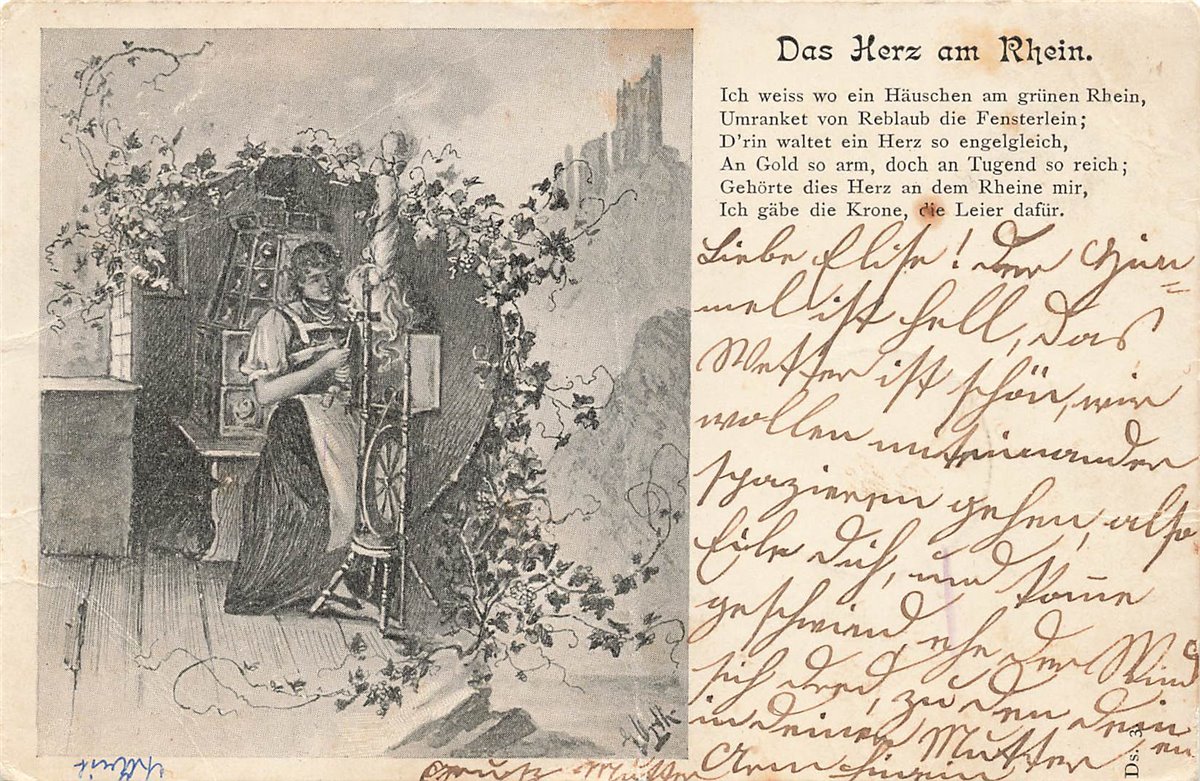 Das Herz am Rhein.
Ich weiss wo ein Häuschen am grünen Rhein,
Umranket von Reblaub die Fensterlein;
D'rin waltet ein Herz so engelgleich,
An Gold so arm, doch an Tugend so reich;
Gehörte dies Herz an dem Rheine mir,
Ich gäbe die Krone, die Leier dafür.
Liebe Elise! Der Him=
mel ist hell, das
Wetter ist schön, wir
wollen miteinander
spazieren gehen, also
Eile dich, und kom̄e
geschwind, ehe der Wind
sich dred, zu den dein
in deiner Mutter
Arm hinein
Gruß Mutter
Ds. 3.